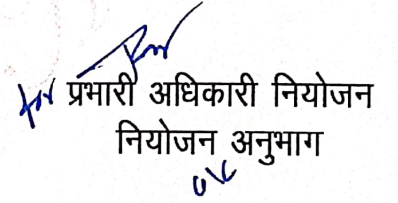 for प्रभारी अधिकारी नियोजन
नियोजन अनुभाग